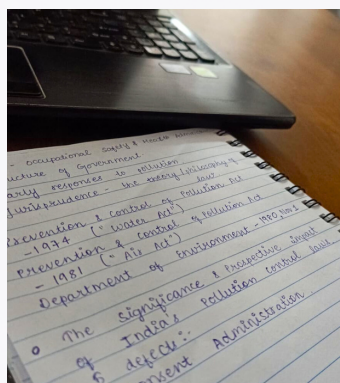 - Occupational Safety & Health
ucture of Government
ary responses to pollution
Jurisprudence - the theory/philosophy of law
Prevention & control of Pollution Act
- 1974 ("Water Act")
Prevention & control of Pollution Act
- 1981 ("Air Act")
Department of Environment - 1980, Nov 1
The significance & Prospective impact
of India's Pollution control laws
5 defects:-
onsent Administration